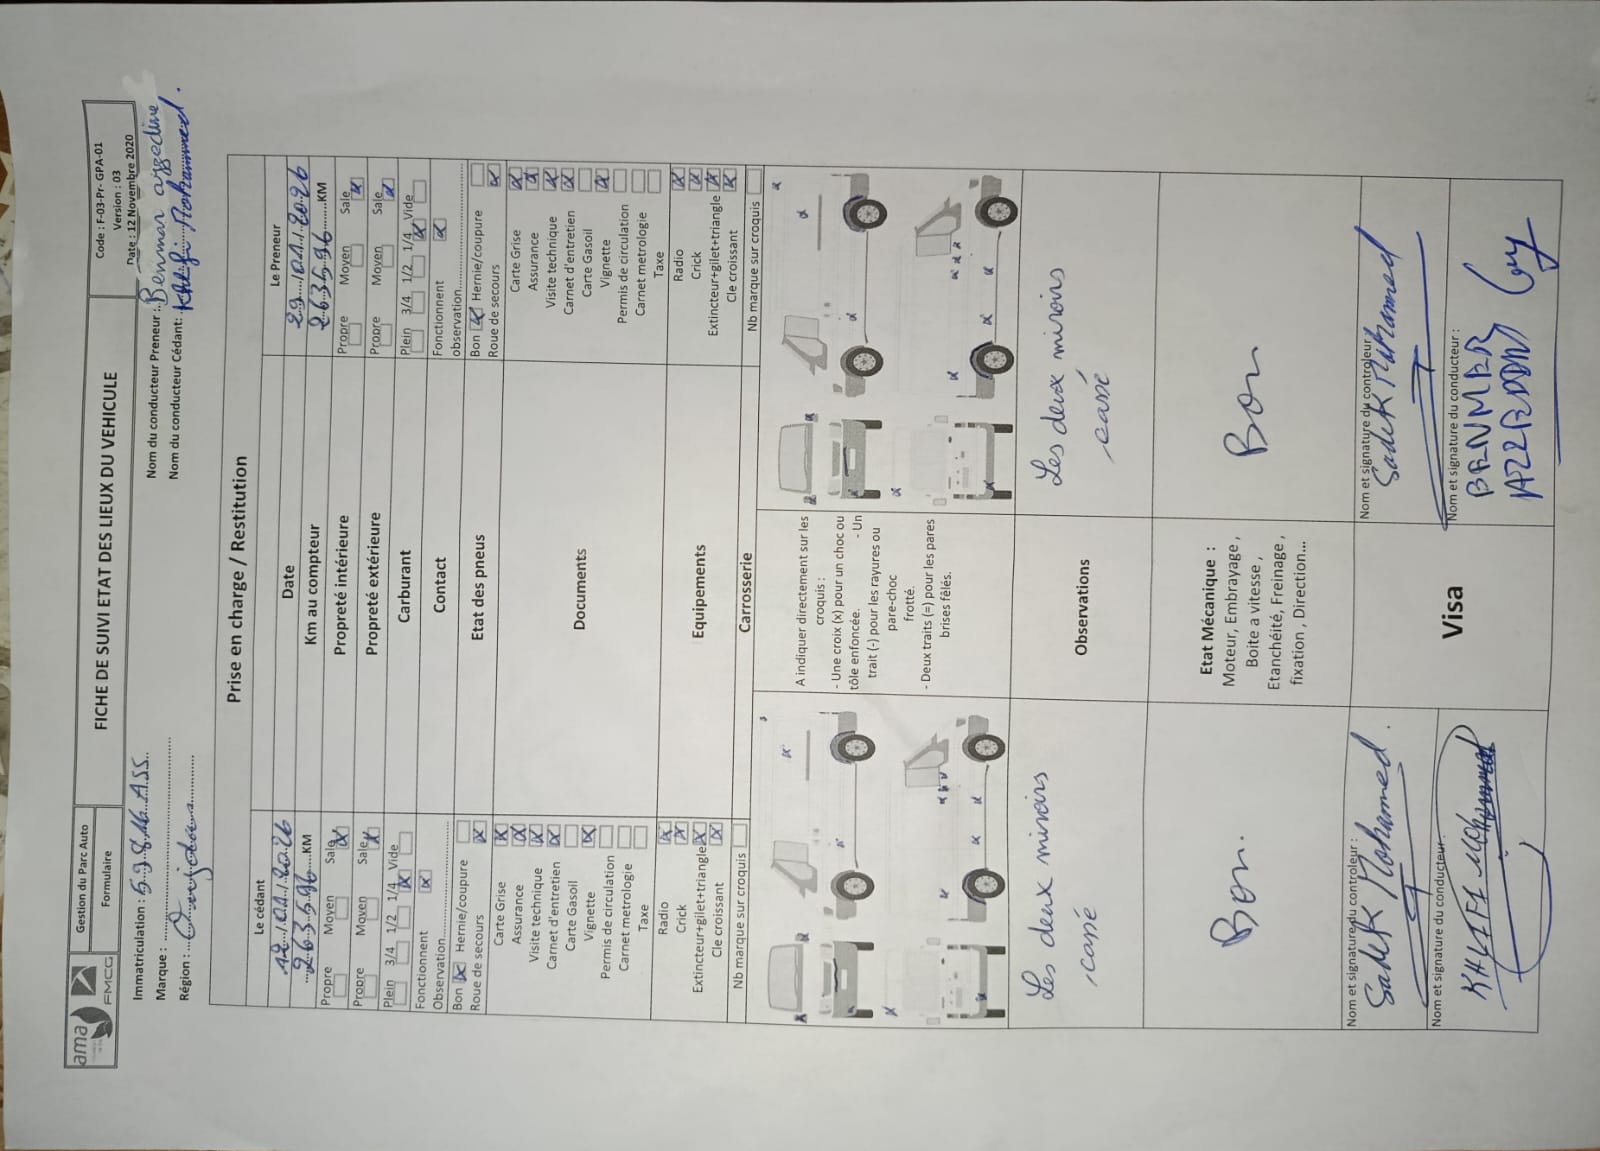 ama
FMCG
Gestion du Parc Auto
Formulaire
FICHE DE SUIVI ETAT DES LIEUX DU VEHICULE
Code : F-03-Pr- GPA-01
Version : 03
Date : 12 Novembre 2020
Immatriculation :
Nom du conducteur Preneur : Benmar azzedine
Marque :
Nom du conducteur Cédant: Khlifi Mohammed.
Région : Oujda
Prise en charge / Restitution
Le cédant
Le Preneur
Date
29/01/2026
263596 KM
Km au compteur
263596 KM
Propre Moyen Sale
Propreté intérieure
Propre Moyen Sale
Propre Moyen Sale
Propreté extérieure
Propre Moyen Sale
Plein 3/4 1/2 1/4 Vide
Carburant
Plein 3/4 1/2 1/4 Vide
Fonctionnent
Observation
Contact
Fonctionnent
observation
Bon Hernie/coupure
Roue de secours
Etat des pneus
Bon Hernie/coupure
Roue de secours
Carte Grise
Assurance
Visite technique
Carnet d'entretien
Carte Gasoil
Vignette
Permis de circulation
Carnet metrologie
Taxe
Documents
Carte Grise
Assurance
Visite technique
Carnet d'entretien
Carte Gasoil
Vignette
Permis de circulation
Carnet metrologie
Taxe
Radio
Crick
Extincteur+gilet+triangle
Cle croissant
Equipements
Radio
Crick
Extincteur+gilet+triangle
Cle croissant
Nb marque sur croquis
Carrosserie
Nb marque sur croquis
A indiquer directement sur les
croquis :
- Une croix (x) pour un choc ou
tôle enfoncée. - Un
trait (-) pour les rayures ou
pare-choc
frotté.
- Deux traits (=) pour les pares
brises fêlés.
Les deux miroirs
cassé
Observations
Les deux miroirs
cassé
Bon.
Etat Mécanique :
Moteur, Embrayage ,
Boite a vitesse ,
Etanchéité, Freinage ,
fixation , Direction...
Bon
Nom et signature du controleur :
Sadek Mohamed.
Visa
Nom et signature du controleur :
Sadek Mohamed
Nom et signature du conducteur:
KHLIFI MOhammed
Nom et signature du conducteur :
BENMER
AZZEDDIN